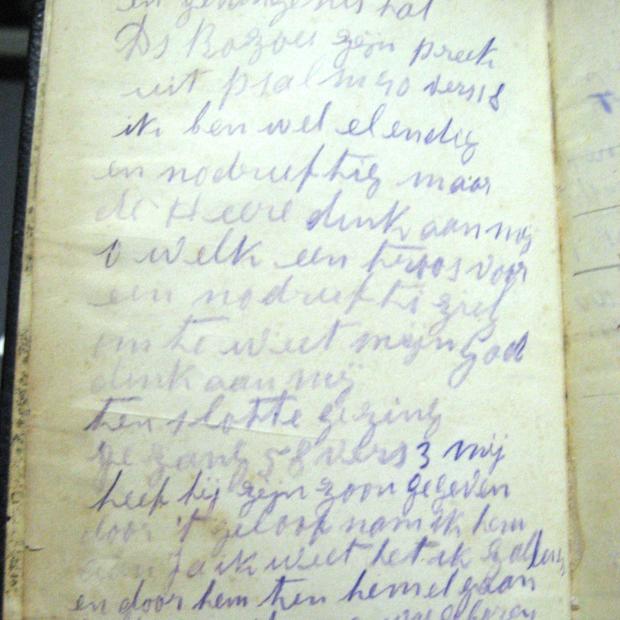 en gevangenis hat
Ds Bozou zijn preek
uit psalm 40 vers 18
ik ben wel elendig
en nodruftig maar
de Heere dink aan mij
O welk een troos voor
een nodrufti ziel
om te weet mijn God
dink aan mij
ten slotte gezing
gezang 58 vers 3 mij
heef hij zijn zoon gegeven
door 't geloof nam ik hem
aan Ja ik weet het ik zal
en door hem ten hemel gaan